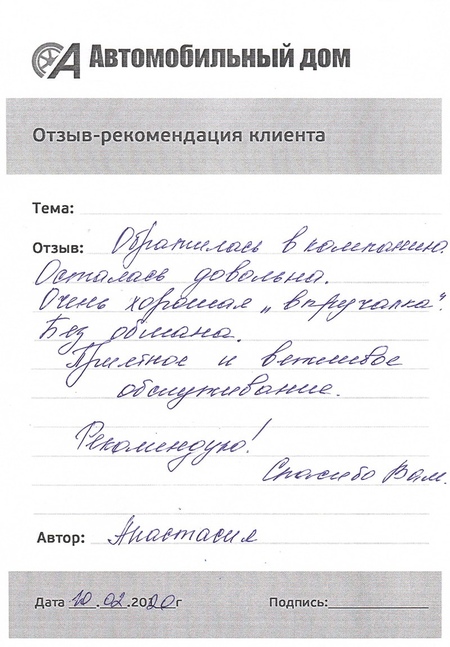 Автомобильный дом
Отзыв-рекомендация клиента
Тема:
Отзыв: Обратилась в компанию.
Осталась довольна.
Очень хорошая „впручалка".
Без обмана.
Приятное и вежливое
обслуживание.
Рекомендую!
Спасибо Вам.
Автор: Анастасия
Дата 10.02.2020г Подпись: